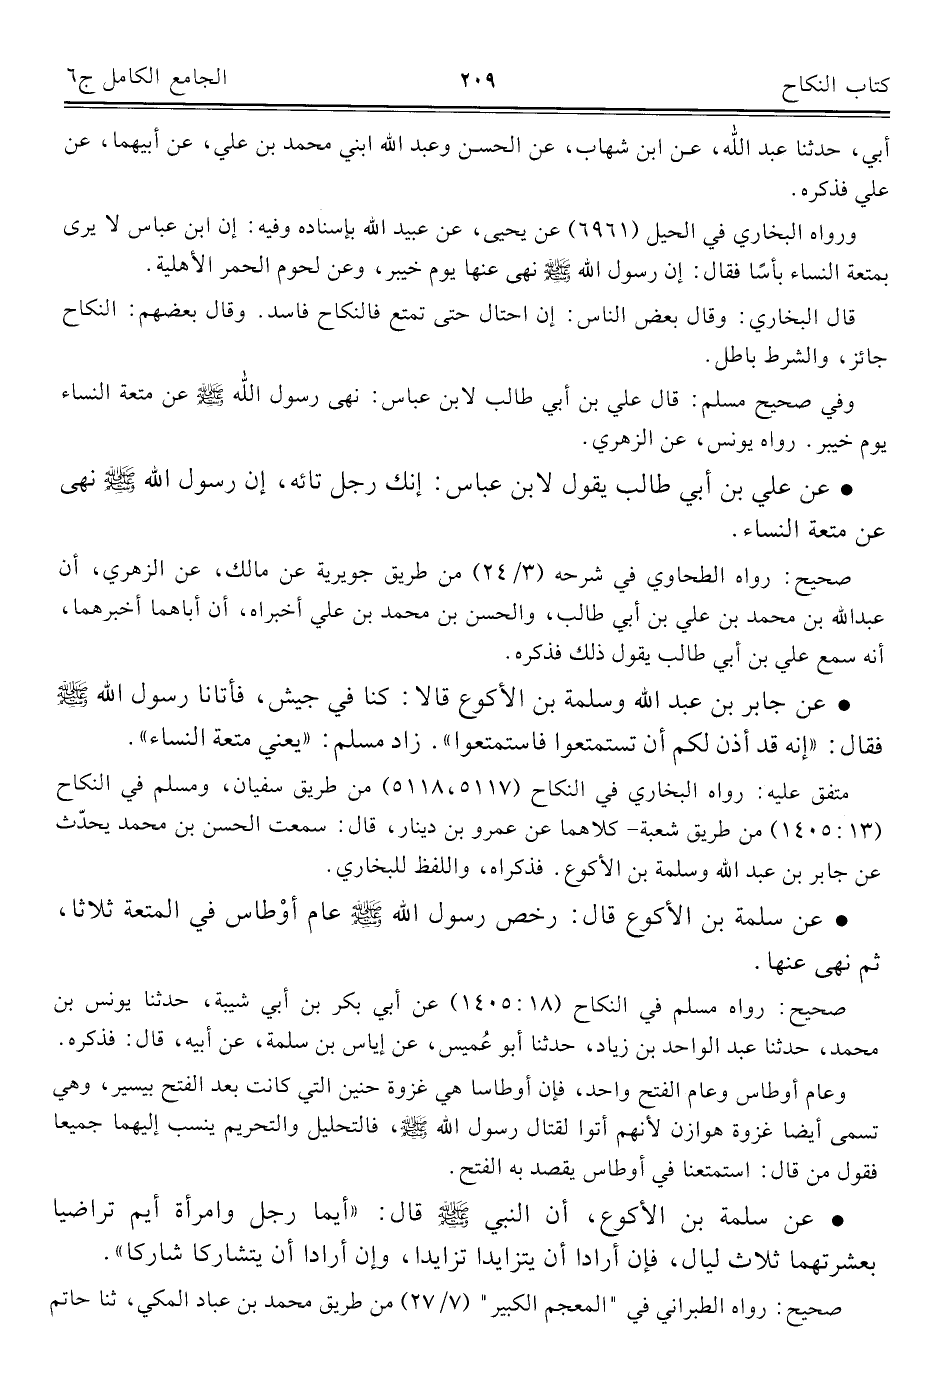 كتاب النكاح ٢٠٩ الجامع الكامل ج٦
أبي، حدثنا عبد اللّٰه، عن ابن شهاب، عن الحسن وعبد الله ابني محمد بن علي، عن أبيهما، عن
علي فذكره.
ورواه البخاري في الحيل (٦٩٦١) عن يحيى، عن عبيد الله بإسناده وفيه: إن ابن عباس لا يرى
بمتعة النساء بأسًا فقال: إن رسول الله ﷺ نهى عنها يوم خيبر، وعن لحوم الحمر الأهلية.
قال البخاري: وقال بعض الناس: إن احتال حتى تمتع فالنكاح فاسد. وقال بعضهم: النكاح
جائز، والشرط باطل.
وفي صحيح مسلم: قال علي بن أبي طالب لابن عباس: نهى رسول اللّٰه ﷺ عن متعة النساء
يوم خيبر. رواه يونس، عن الزهري.
● عن علي بن أبي طالب يقول لابن عباس: إنك رجل تائه، إن رسول الله ﷺ نهى
عن متعة النساء.
صحيح: رواه الطحاوي في شرحه (٢٤/٣) من طريق جويرية عن مالك، عن الزهري، أن
عبدالله بن محمد بن علي بن أبي طالب، والحسن بن محمد بن علي أخبراه، أن أباهما أخبرهما،
أنه سمع علي بن أبي طالب يقول ذلك فذكره.
● عن جابر بن عبد الله وسلمة بن الأكوع قالا: كنا في جيش، فأتانا رسول الله ﷺ
فقال: «إنه قد أذن لكم أن تستمتعوا فاستمتعوا». زاد مسلم: «يعني متعة النساء».
متفق عليه: رواه البخاري في النكاح (٥١١٧،٥١١٨) من طريق سفيان، ومسلم في النكاح
(١٤٠٥:١٣) من طريق شعبة- كلاهما عن عمرو بن دينار، قال: سمعت الحسن بن محمد يحدّث
عن جابر بن عبد الله وسلمة بن الأكوع. فذكراه، واللفظ للبخاري.
● عن سلمة بن الأكوع قال: رخص رسول الله ﷺ عام أوْطاس في المتعة ثلاثا،
ثم نهى عنها.
صحيح: رواه مسلم في النكاح (١٤٠٥:١٨) عن أبي بكر بن أبي شيبة، حدثنا يونس بن
محمد، حدثنا عبد الواحد بن زياد، حدثنا أبو عُميس، عن إياس بن سلمة، عن أبيه، قال: فذكره.
وعام أوطاس وعام الفتح واحد، فإن أوطاسا هي غزوة حنين التي كانت بعد الفتح بيسير، وهي
تسمى أيضا غزوة هوازن لأنهم أتوا لقتال رسول الله ﷺ، فالتحليل والتحريم ينسب إليهما جميعا
فقول من قال: استمتعنا في أوطاس يقصد به الفتح.
● عن سلمة بن الأكوع، أن النبي ﷺ قال: «أيما رجل وامرأة أيم تراضيا
بعشرتهما ثلاث ليال، فإن أرادا أن يتزايدا تزايدا، وإن أرادا أن يتشاركا شاركا».
صحيح: رواه الطبراني في "المعجم الكبير" (٢٧/٧) من طريق محمد بن عباد المكي، ثنا حاتم